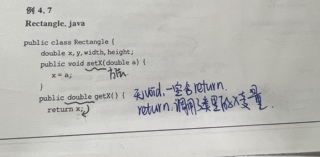 例 4.7
Rectangle.java
public class Rectangle {
double x,y,width,height;
public void setX(double a) {
x=a; 方法
}
public double getX() {
return x;}
无void,一定含return.
return,调用了类里的x变量.